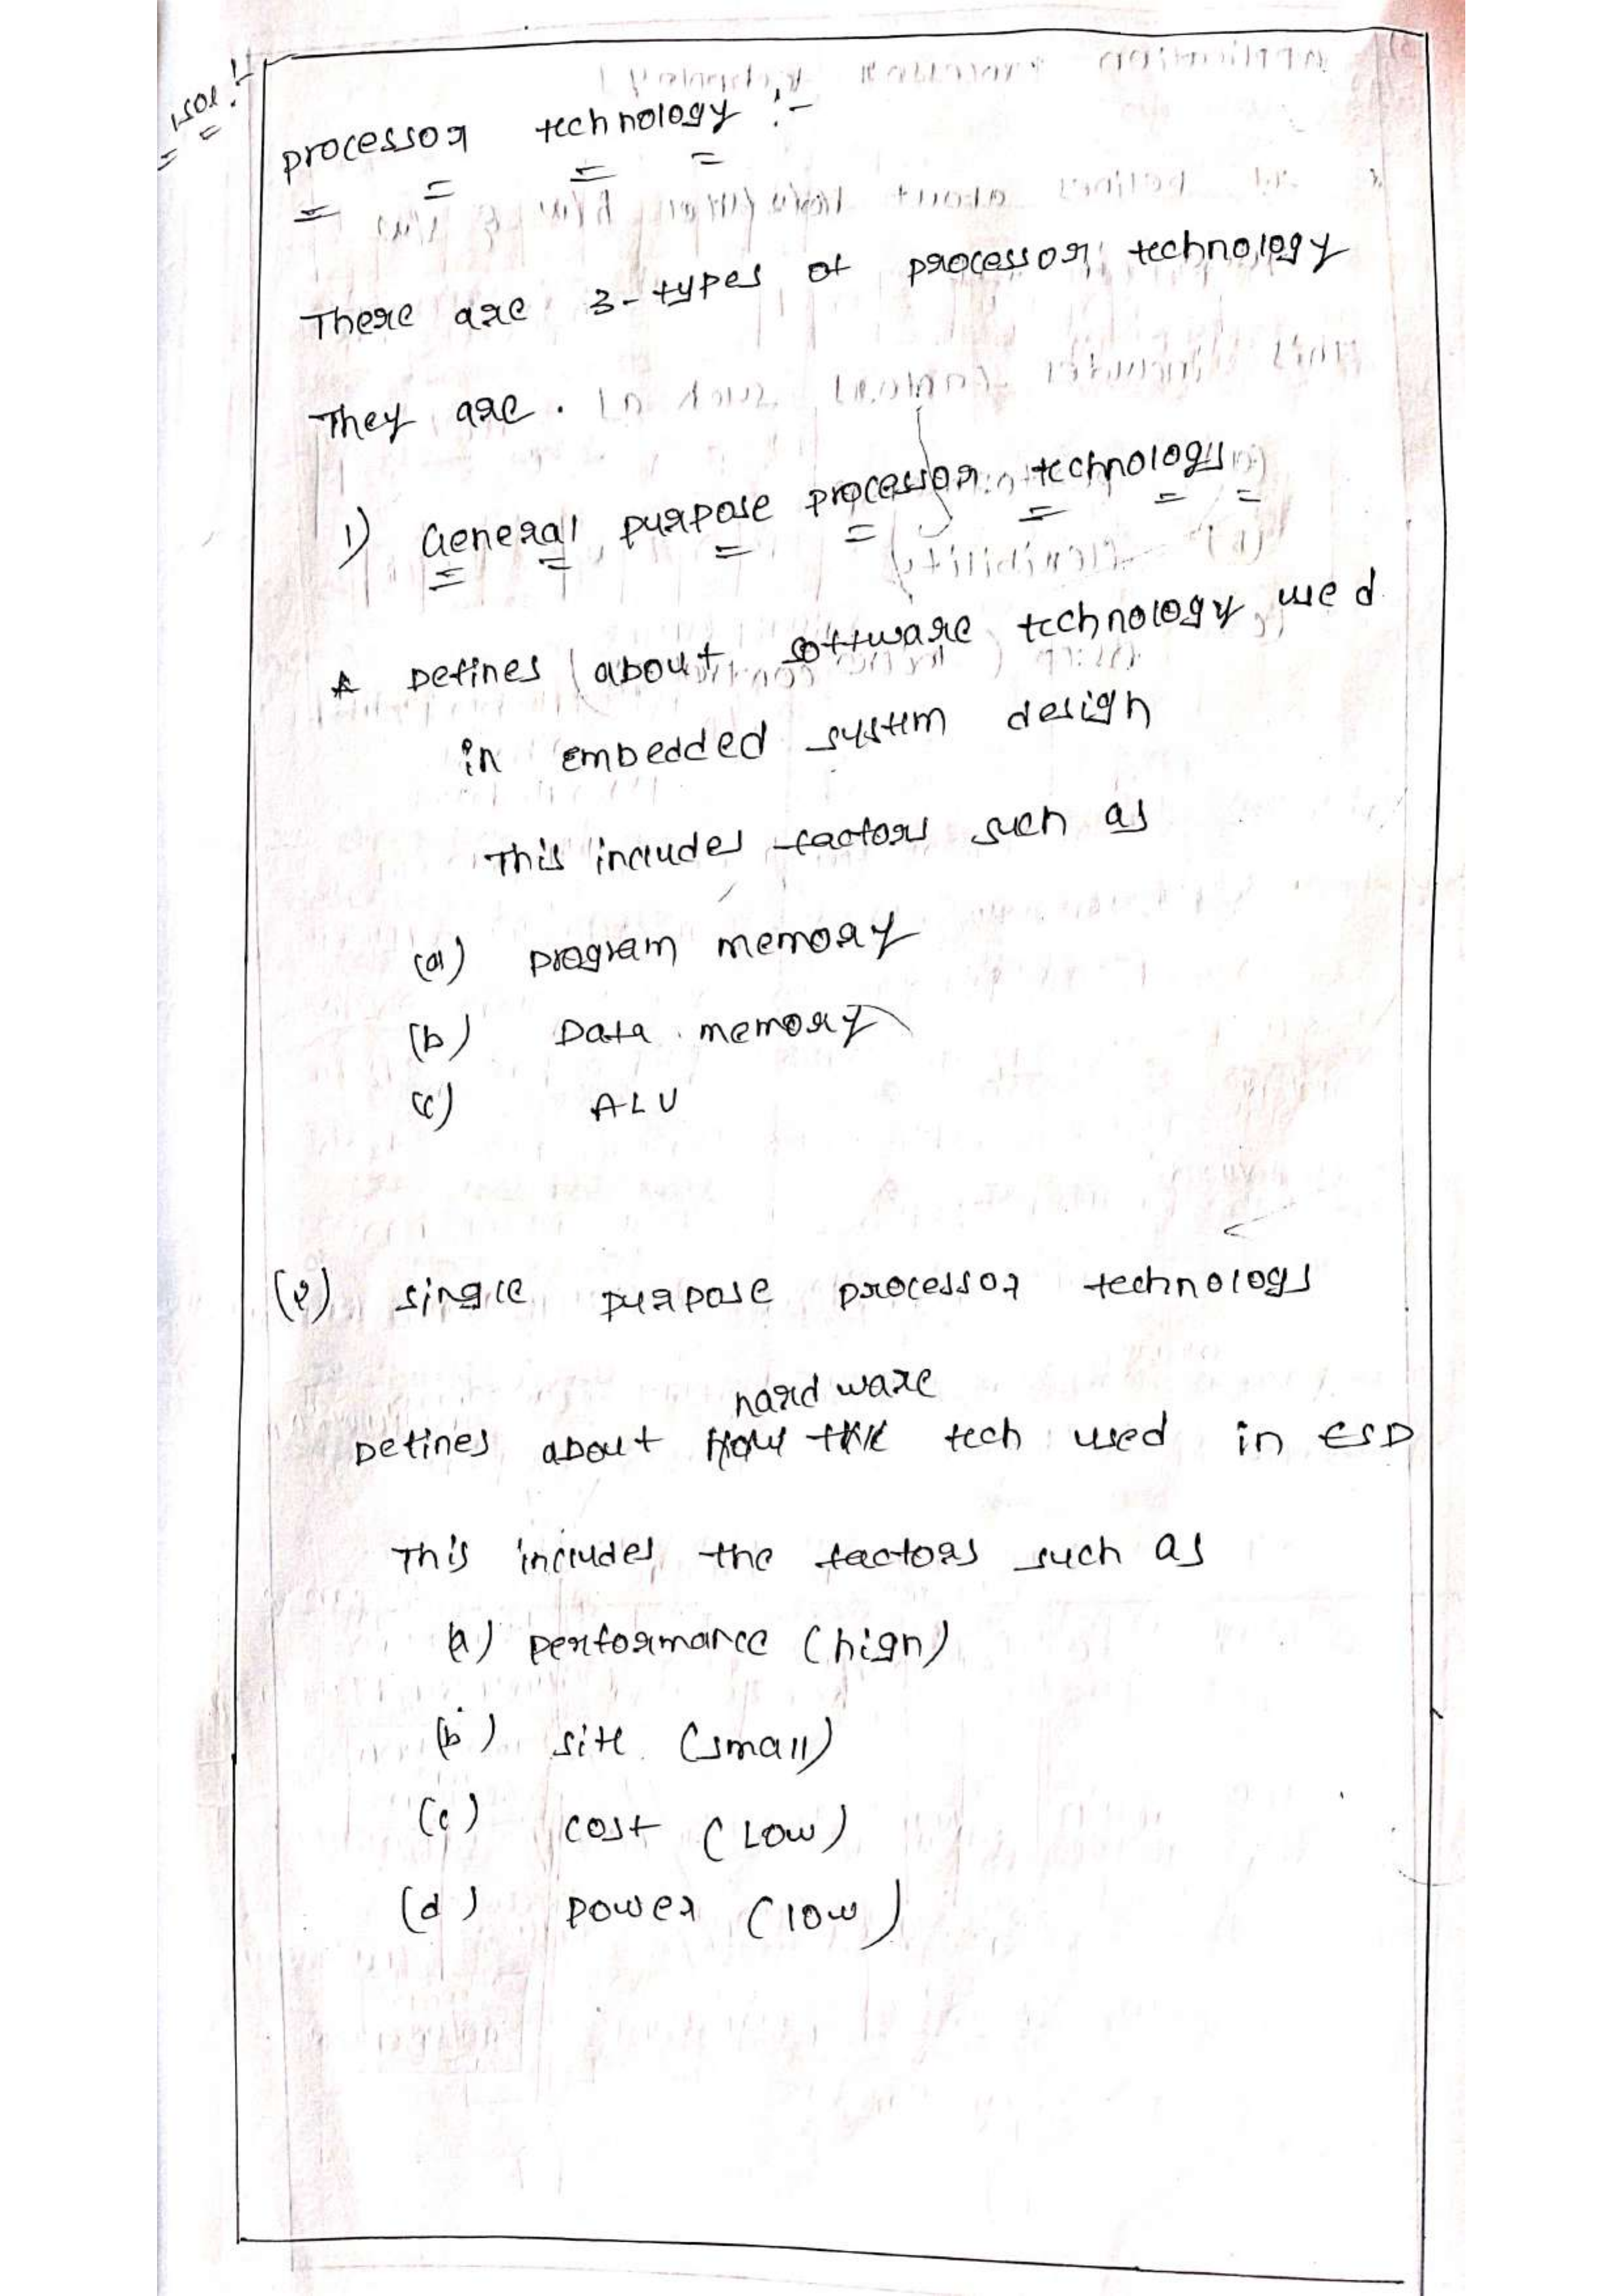 processor technology :-
There are 3-types of processor technology
They are.
1) General purpose processor technology
* Defines about software technology used
in embedded system design
This includes factors such as
(a) program memory
(b) Data memory
(c) ALU
(2) single purpose processor technology
hardware
Defines about tech used in ESD
This includes the factors such as
(a) performance (high)
(b) size (small)
(c) cost (Low)
(d) power (low)